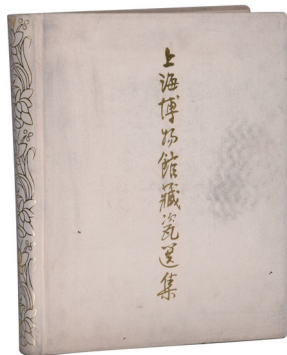 上海博物館藏瓷选集